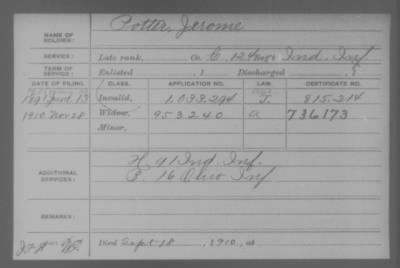 NAME OF SOLDIER: Potter, Jerome
SERVICE: Late rank, Co. C, 124 Reg't Ind. Inf.
TERM OF SERVICE: Enlisted , 1 Discharged , 8
DATE OF FILING. CLASS. APPLICATION NO. LAW. CERTIFICATE NO.
1891 Jan. 13 Invalid, 1,093,294 J 815.214
1910. Nov 28. Widow, 953240 a 736173
Minor,
ADDITIONAL SERVICES: H. 91 Ind. Inf.
16 Ohio Inf
REMARKS:
Died Sept 18, 1910, at